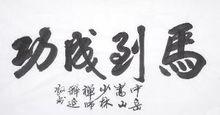 馬到成功
中岳
嵩山
少林
禪師